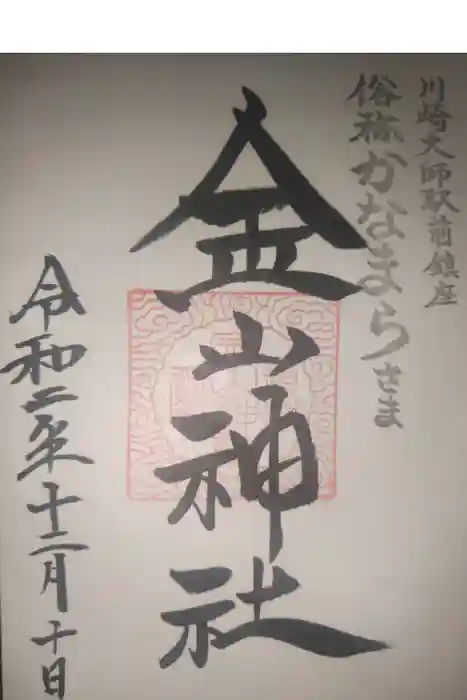 川崎大師駅前鎮座
俗称かなまらさま
金山神社
令和二年十二月十日